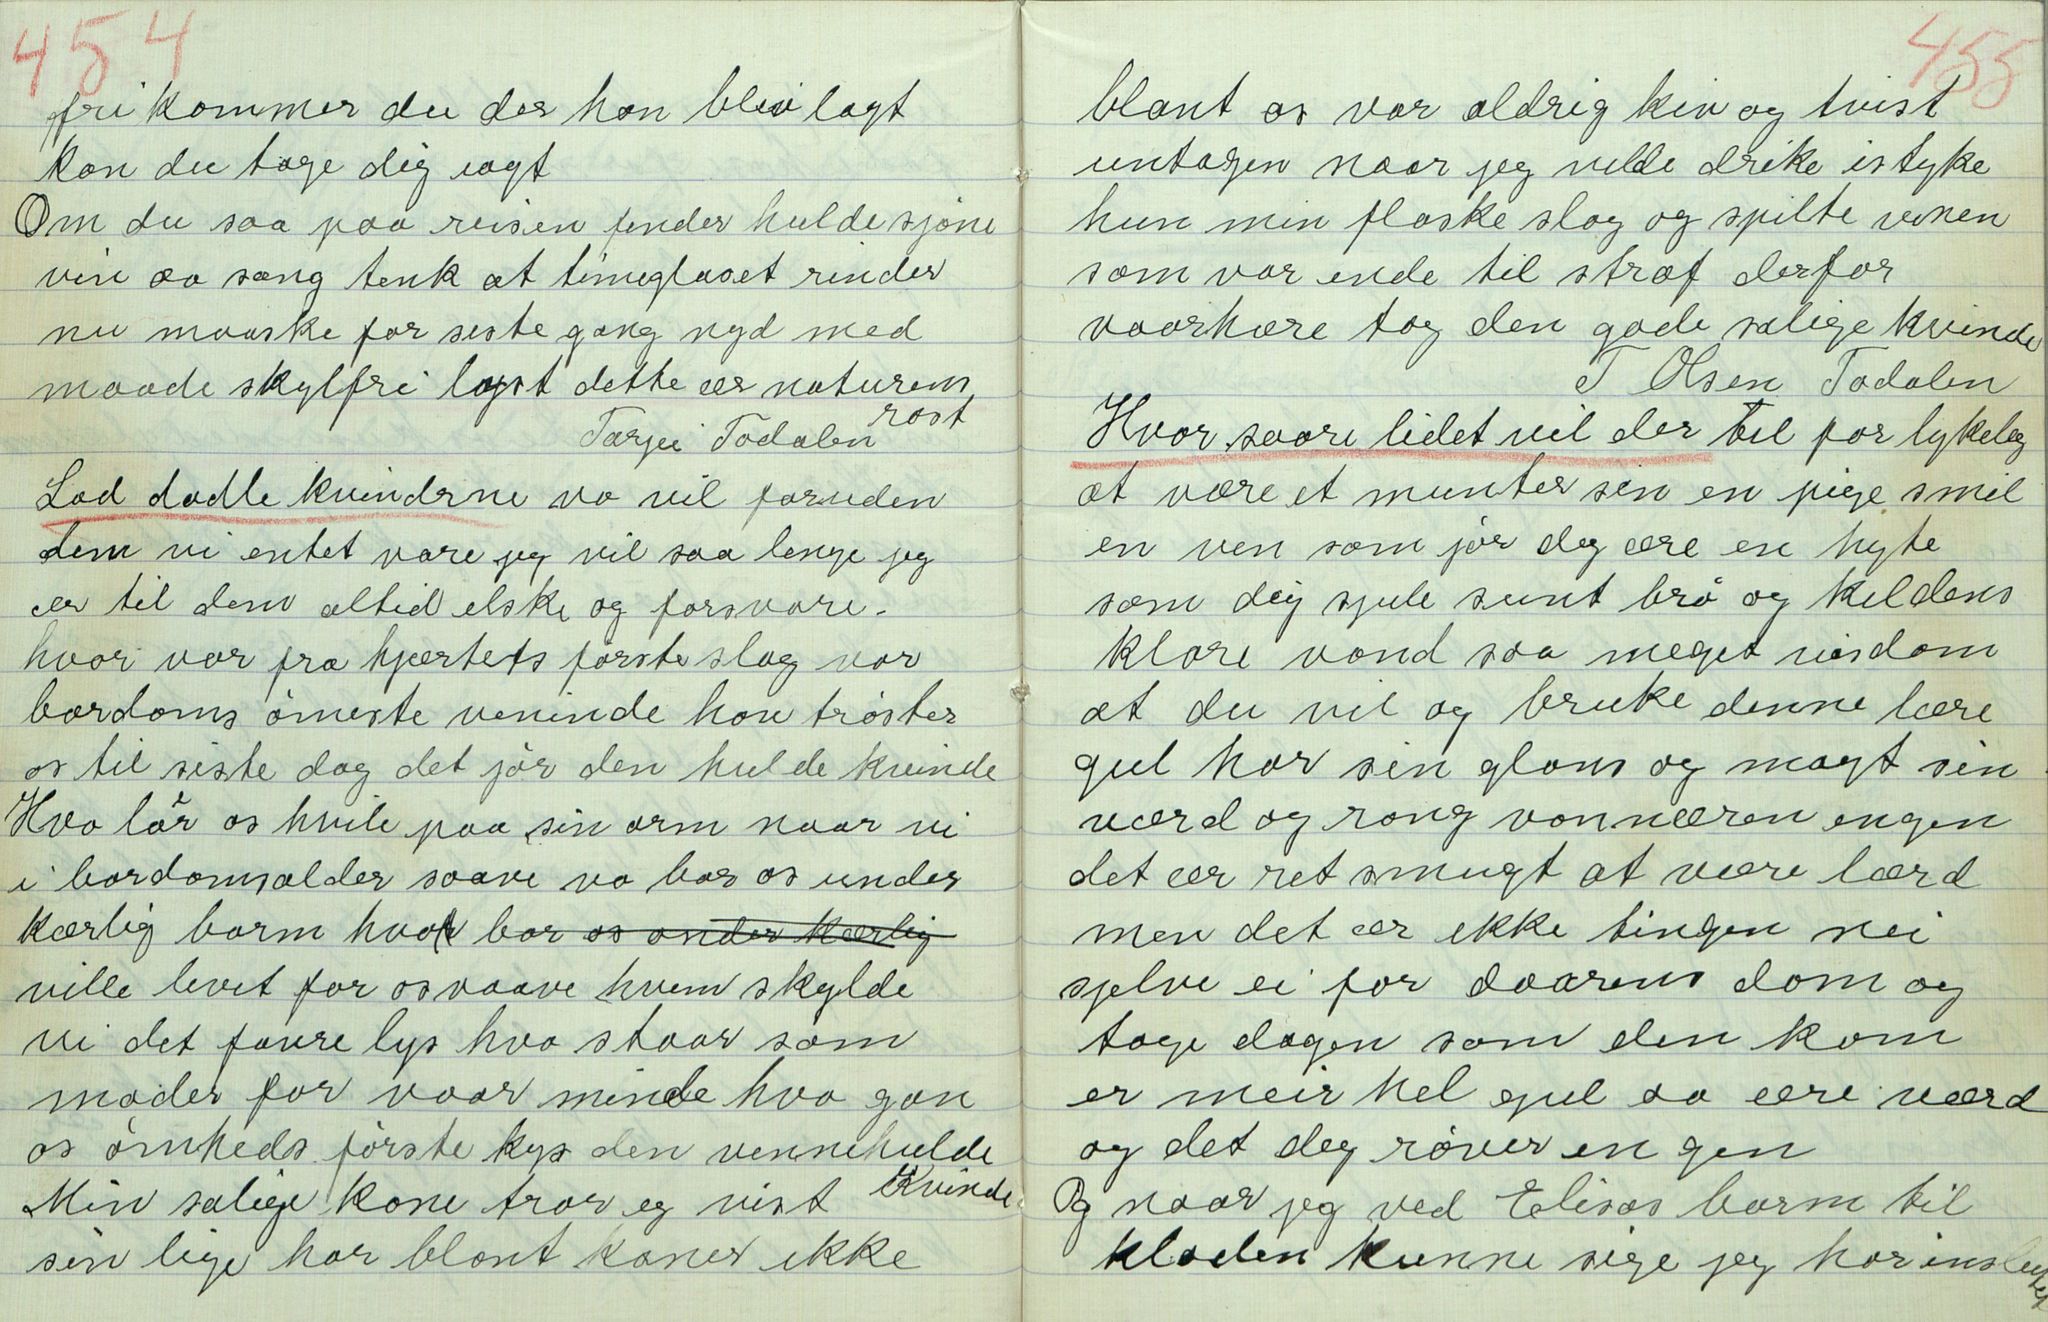 454
fri kommer du der han blei lagt
kan du tage dig vagt
Om du saa paa reisen finder hulde sjöne
vin aa sang tenk at timeglaset rinder
nu maaske for siste gang nyd med
maade skylfri lyst dette ær naturens
rost
Tarjei Todalen
Lad dadle kvinderne va vil foruden
dem vi entet vare jeg vil saa lenge jeg
ær til dem altid elske og forsvare.
hvor var fra hjærtets förste slag vor
bardoms ömeste veninde hon tröster
os til siste dag det jör den hulde kvinde
Hva lär os hvile paa sin arm naar vi
i bardomsalder saave va bar os under
kærlig barm hvor bar os onder kærlig
ville levet for os vaave hvem skylde
vi det favre lys hva staar som
moder for vaar minde hva gav
os ömheds förste kys den vennehulde
Kvinde
Min salige kone tror eg vist
sin lige har blant koner ikke
455
blant os var aldrig kiv og tvist
untagen naar jeg vilde drike istyke
hun min flaske slog og spilte vinen
som var ende til straf derfor
vaarhære tog den gode salige kvinde
T Olsen Todalen
Hvor saare lidet vil der til for lykeleg
at være et munter sin en pige smil
en ven som jör deg ære en hyte
som dig sjule sunt brö og kildens
klare vand saa meget visdom
at du vil og bruke denne lære
gul har sin glans og magt sin
værd og rang vonnæren engen
det ær ret smugt at være lærd
men det ær ikke tingen nei
sjelve ei for daarens dom og
tage dagen som den kom
er meir hel gul aa ære værd
og det deg röver en gen
Og naar jeg ved Elisas barm til
kloden kunne sige jeg har inslutet